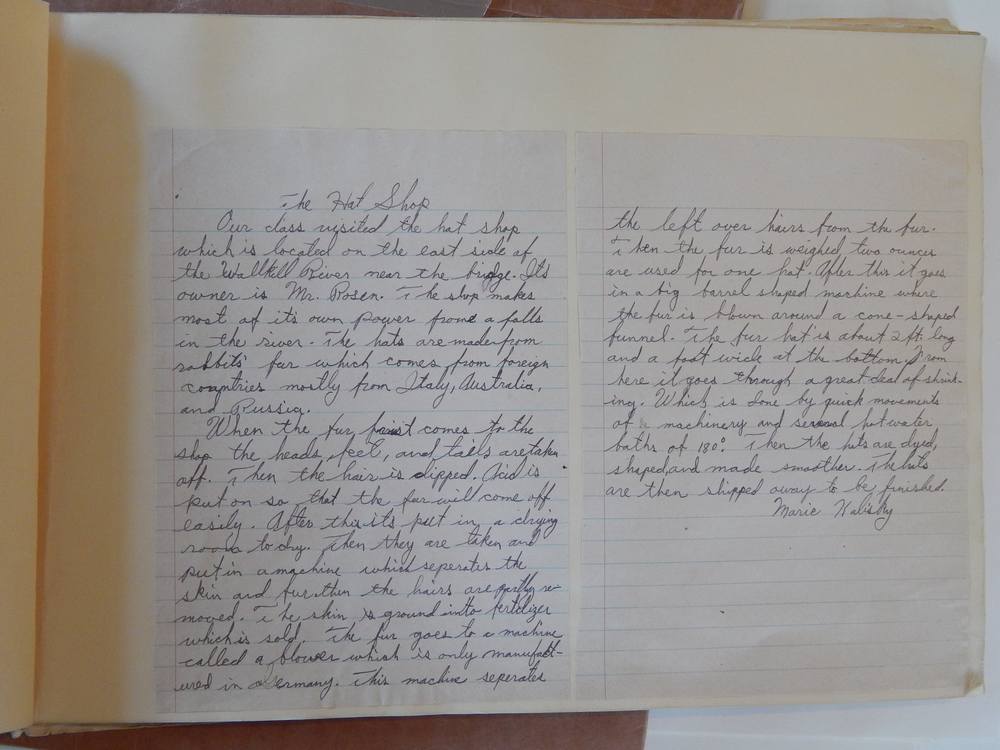 The Hat Shop
Our class visited the hat shop
which is located on the east side of
the Wallkill River near the bridge. It's
owner is Mr. Rosen. The shop makes
most of it's own power from a falls
in the river. The hats are made from
rabbits' fur which comes from foreign
countries mostly from Italy, Australia,
and Russia.
When the fur first comes to the
shop the heads, feet, and tails are taken
off. Then the hair is clipped. Acid is
put on so that the fur will come off
easily. After this it's put in a drying
room to dry. Then they are taken and
put in a machine which seperates the
skin and fur then the hairs are partly re-
moved. The skin is ground into fertilizer
which is sold. The fur goes to a machine
called a blower which is only manufact-
ured in Germany. This machine seperates
the left over hairs from the fur.
Then the fur is weighed two ounces
are used for one hat. After this it goes
in a big barrel shaped machine where
the fur is blown around a cone-shaped
funnel. The fur hat is about 2 ft. long
and a foot wide at the bottom. From
here it goes through a great deal of shrink-
ing. Which is done by quick movements
of machinery and several hot water
baths of 180°. Then the hats are dyed,
shaped, and made smoother. The hats
are then shipped away to be finished.
Marie